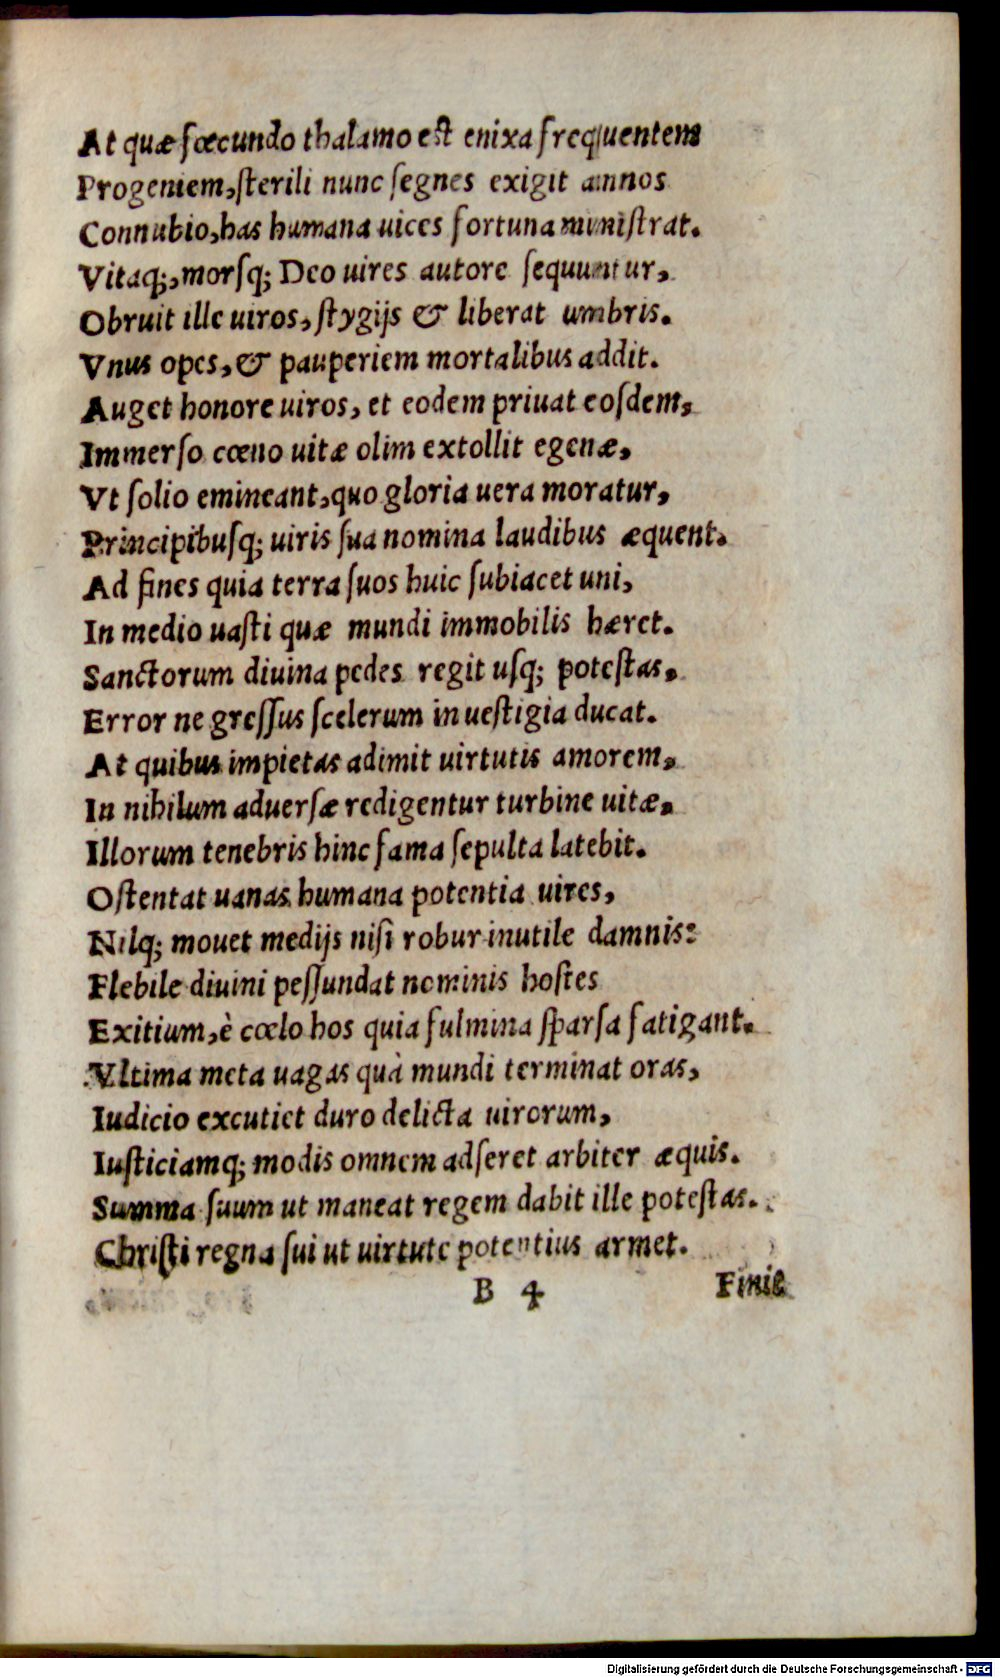 At quæ fœcundo thalamo est enixa frequentem
Progeniem, sterili nunc segnes exigit annos
Connubio, has humana uices fortuna ministrat.
Vitaq;, morsq; Deo uires autore sequuntur,
Obruit ille uiros, stygijs & liberat umbris.
Vnus opes, & pauperiem mortalibus addit.
Auget honore uiros, et eodem priuat eosdem,
Immerso cœno uitæ olim extollit egenæ,
Vt solio emineant, quo gloria uera moratur,
Principibusq; uiris sua nomina laudibus æquent.
Ad fines quia terra suos huic subiacet uni,
In medio uasti quæ mundi immobilis hæret.
Sanctorum diuina pedes regit usq; potestas,
Error ne gressus scelerum in uestigia ducat.
At quibus impietas adimit uirtutis amorem,
In nihilum aduersæ redigentur turbine uitæ,
Illorum tenebris hinc fama sepulta latebit.
Ostentat uanas humana potentia uires,
Nilq; mouet medijs nisi robur inutile damnis:
Flebile diuini pessundat nominis hostes
Exitium, è cœlo hos quia fulmina sparsa fatigant.
Vltima meta uagas quà mundi terminat oras,
Iudicio excutiet duro delicta uirorum,
Iusticiamq; modis omnem adseret arbiter æquis.
Summa suum ut maneat regem dabit ille potestas.
Christi regna sui ut uirtute potentius armet.
B 4 Finis
Digitalisierung gefördert durch die Deutsche Forschungsgemeinschaft - DFG